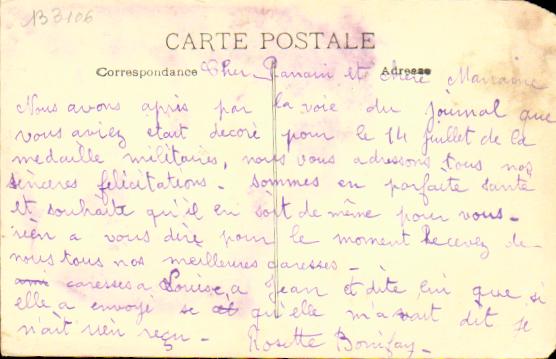 133106
CARTE POSTALE
Correspondance Adresse
Cher Parrain et chère Marraine
Nous avons appris par la voie du journal que
vous aviez etait decoré pour le 14 juillet de la
medaille militaires, nous vous adressons tous nos
sincères felicitations. sommes en parfaite santé
et souhaite qu'il en soit de même pour vous.
rien a vous dire pour le moment Recevez de
nous tous nos meilleures caresses.
caresses a Louise, a Jean et dite lui que si
elle a envoyé se qu'elle m'avait dit je
n'ait rien reçu. Rosette Bonifay.